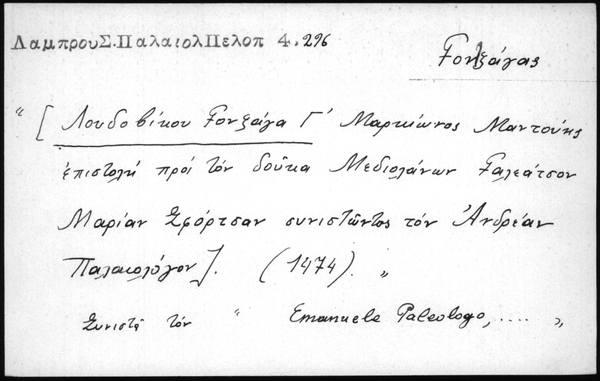 ΛαμπρουΣ.ΠαλαιολΠελοπ 4. 296
Γονζάγας
" [ Λουδοβίκου Γονζάγα Γ' Μαρκίωνος Μαντούης
ἐπιστολή πρός τόν δοῦκα Μεδιολάνων Γαλεάτσον
Μαρίαν Σφόρτσαν συνιστῶντος τόν Ἀνδρέαν
Παλαιολόγον]. (1474). "
Συνιστᾷ τόν " Emanuele Paleologo, ..... "